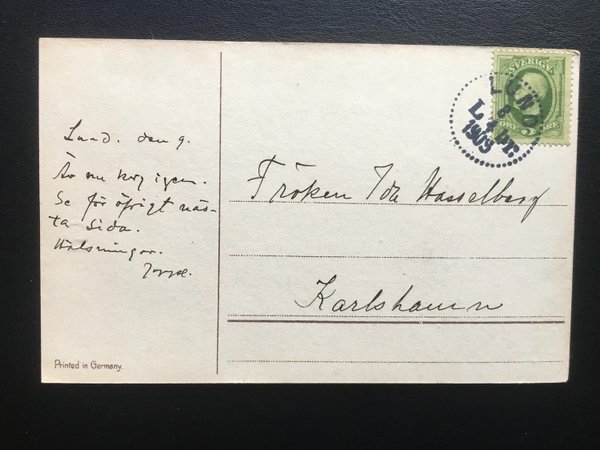 Lund. den 9.
Är nu kry igen.
Se för öfrigt näs-
ta sida.
Hälsningar.
Printed in Germany.
SVERIGE
5 ÖRE
LUND
1909
Fröken Ida Hasselberg
Karlshamn